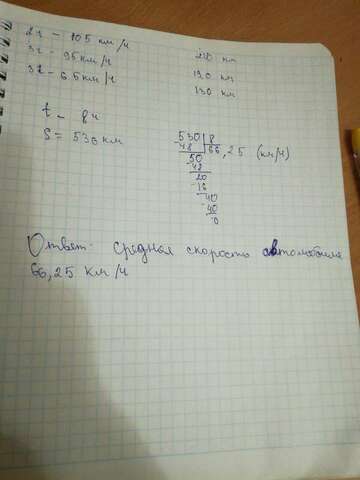 2ч - 105 км/ч 210 км
3ч - 95км/ч 190 км
3ч - 65км/ч 130 км
t - 8ч
S = 530 км
530 | 8
-48 66,25 (км/ч)
50
-48
20
-16
40
-40
0
Ответ: средняя скорость автомобиля
66,25 км/ч